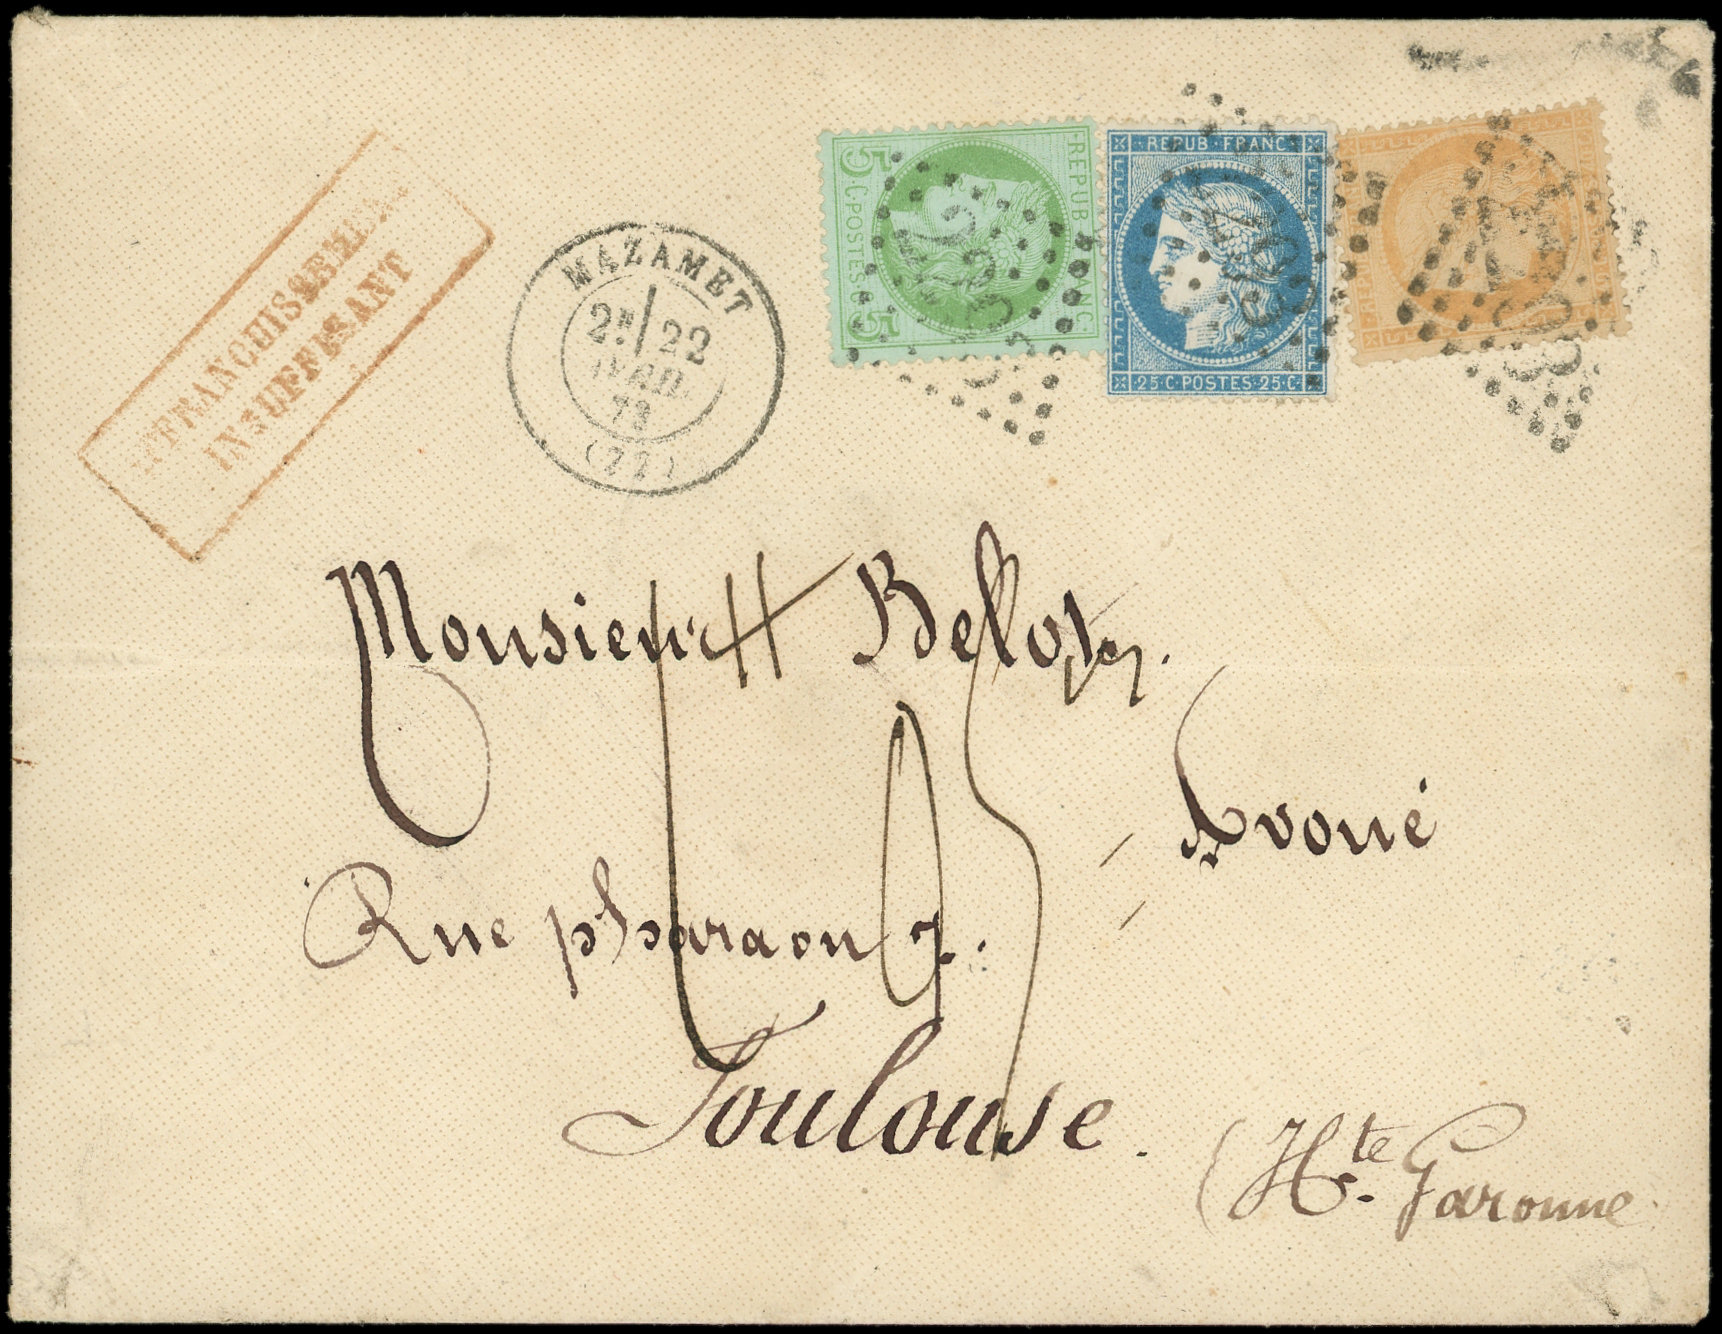 AFFRANCHISSEMENT
INSUFFISANT
MAZAMET
2E/ 22
AVRIL
73
(77)
REPUB FRANC
5 C POSTES 5 C
REPUB FRANC
25 C POSTES 25 C
Monsieur Belot
Avoué
Rue pharaon
Toulouse.
(Hte Garonne